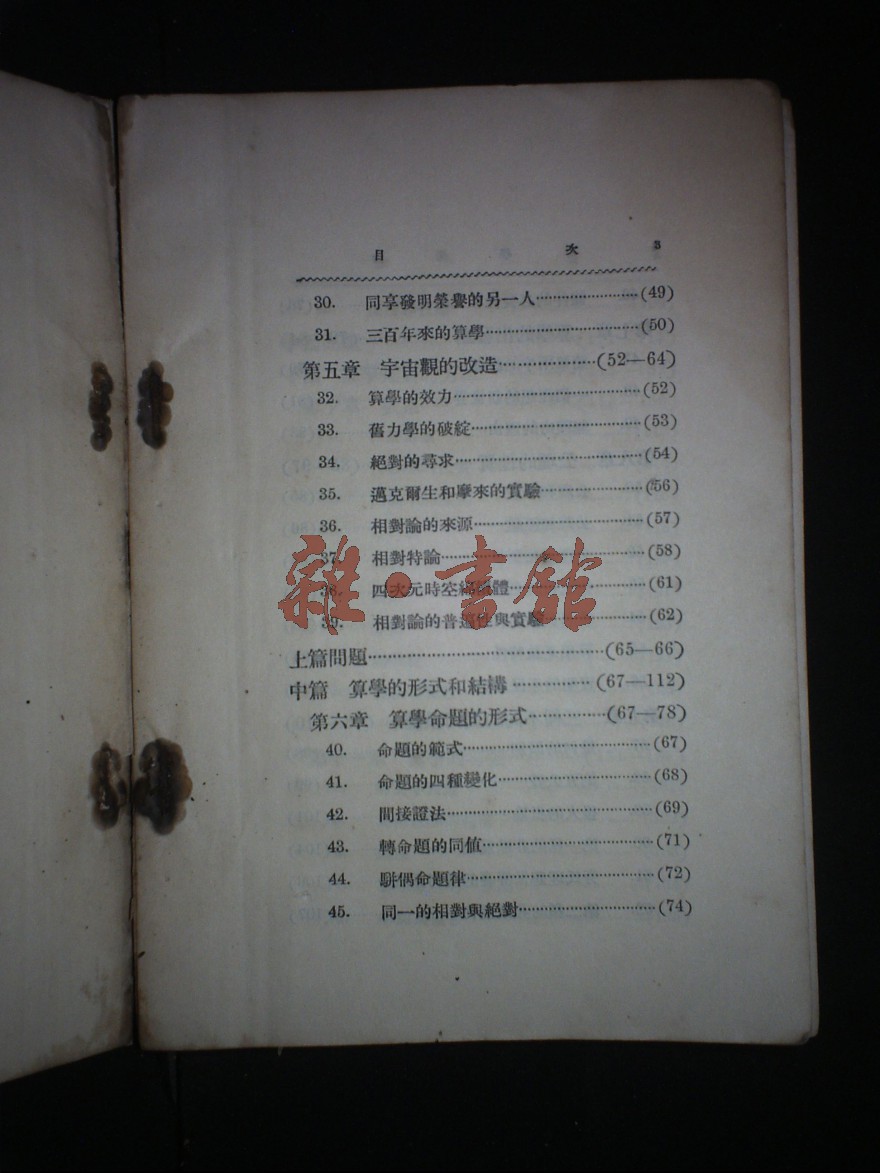 目 次 3
30. 同享發明榮譽的另一人……(49)
31. 三百年來的算學……(50)
第五章 宇宙觀的改造……(52—64)
32. 算學的效力……(52)
33. 舊力學的破綻……(53)
34. 絕對的尋求……(54)
35. 邁克爾生和摩來的實驗……(56)
36. 相對論的來源……(57)
37. 相對特論……(58)
四次元時空 體……(61)
39. 相對論的普遍性與實驗……(62)
雜·書館
上篇問題……(65—66)
中篇 算學的形式和結構……(67—112)
第六章 算學命題的形式……(67—78)
40. 命題的範式……(67)
41. 命題的四種變化……(68)
42. 間接證法……(69)
43. 轉命題的同值……(71)
44. 駢偶命題律……(72)
45. 同一的相對與絕對……(74)